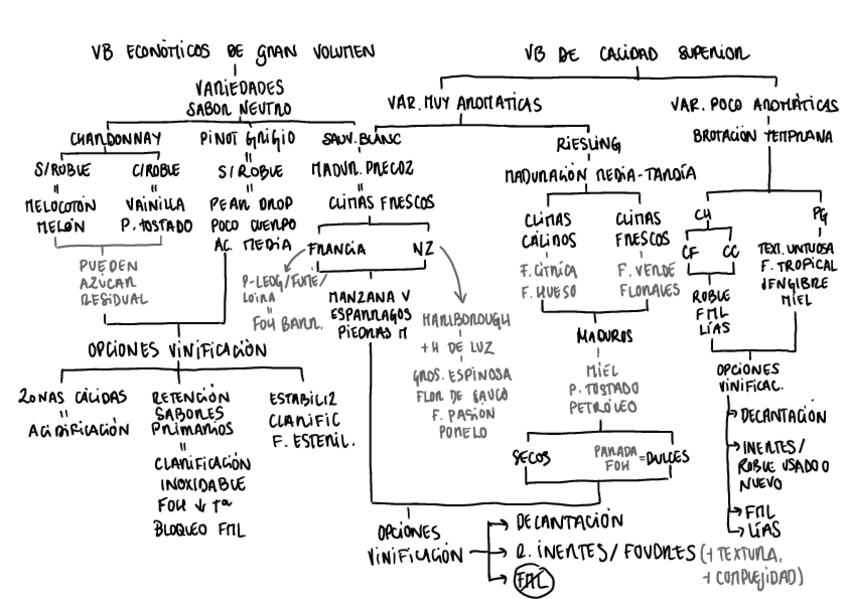 VB ECONÓMICOS DE GRAN VOLUMEN
VARIEDADES
SABOR NEUTRO
CHARDONNAY
PINOT GRIGIO
SAUV. BLANC
S/ROBLE
C/ROBLE
S/ROBLE
MADUR. PRECOZ
MELOCOTÓN
MELÓN
VAINILLA
P. TOSTADO
PEAR DROP
POCO CUERPO
AC. MEDIA
CLIMAS FRESCOS
PUEDEN
AZÚCAR
RESIDUAL
FRANCIA
NZ
P-LEOG/FUMÉ/
LOIRA
FOH BARR.
MANZANA V
ESPARRAGOS
PIEDRAS M
MARLBOROUGH
+ H DE LUZ
GROS. ESPINOSA
FLOR DE SAUCO
F. PASIÓN
POMELO
OPCIONES VINIFICACIÓN
ZONAS CÁLIDAS
ACIDIFICACIÓN
RETENCIÓN
SABORES
PRIMARIOS
CLARIFICACIÓN
INOXIDABLE
FOH ↓ Tª
BLOQUEO FML
ESTABILIZ
CLARIFIC
F. ESTERIL.
VB DE CALIDAD SUPERIOR
VAR. MUY AROMATICAS
VAR. POCO AROMÁTICAS
BROTACIÓN TEMPRANA
RIESLING
MADURACIÓN MEDIA-TARDÍA
CLIMAS
CÁLINOS
F. CÍTRICA
F. HUESO
CLIMAS
FRESCOS
F. VERDE
FLORALES
MADUROS
MIEL
P. TOSTADO
PETRÓLEO
SECOS
PARADA
FOH
=DULCES
CH
CF
CC
ROBLE
FML
LÍAS
PG
TEXT. UNTUOSA
F. TROPICAL
JENGIBRE
MIEL
OPCIONES
VINIFICAC.
DECANTACIÓN
INERTES/
ROBLE USADO O
NUEVO
FML
LÍAS
OPCIONES
VINIFICACIÓN
DECANTACIÓN
R. INERTES/ FOUDRES (+ TEXTURA,
+ COMPLEJIDAD)
FML